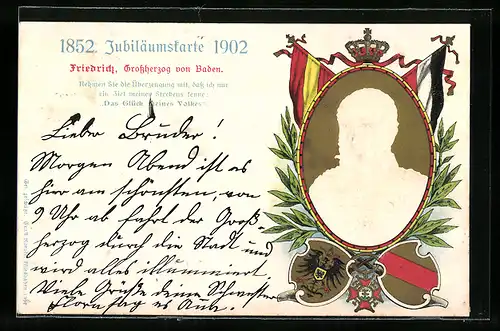 1852 Jubiläumskarte 1902
Friedrich, Großherzog von Baden.
Nehmen Sie die Überzeugung mit, daß ich nur
ein Ziel meines Strebens kenne:
„Das Glück meines Volkes“
Lieber Bruder!
Morgen Abend ist es
hier am schönsten, von
9 Uhr ab fährt der Groß-
herzog durch die Stadt und
wird alles illuminiert.
Viele Grüße deine Schwester